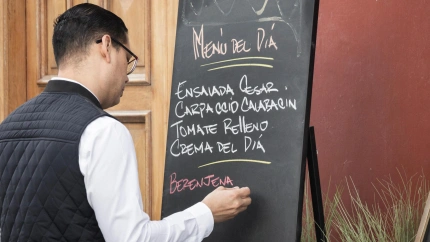 Menú del Día
Ensalada Cesar
Carpaccio Calabacin
Tomate Relleno
Crema del Día
Berenjena